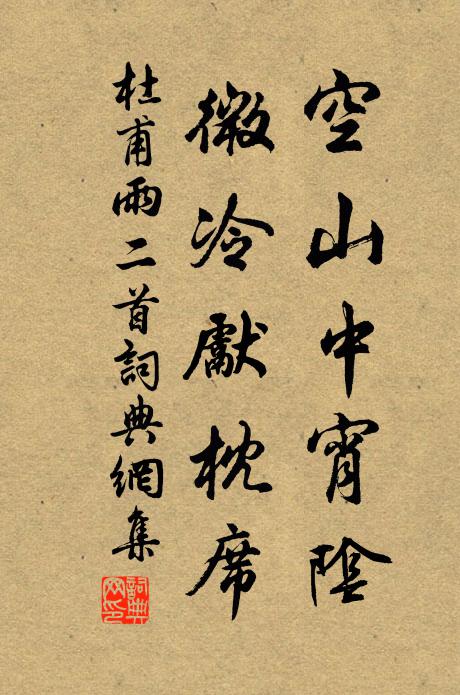 空山中宵陰
微冷獻枕席
杜甫雨二首詞典網集
詞典
网印